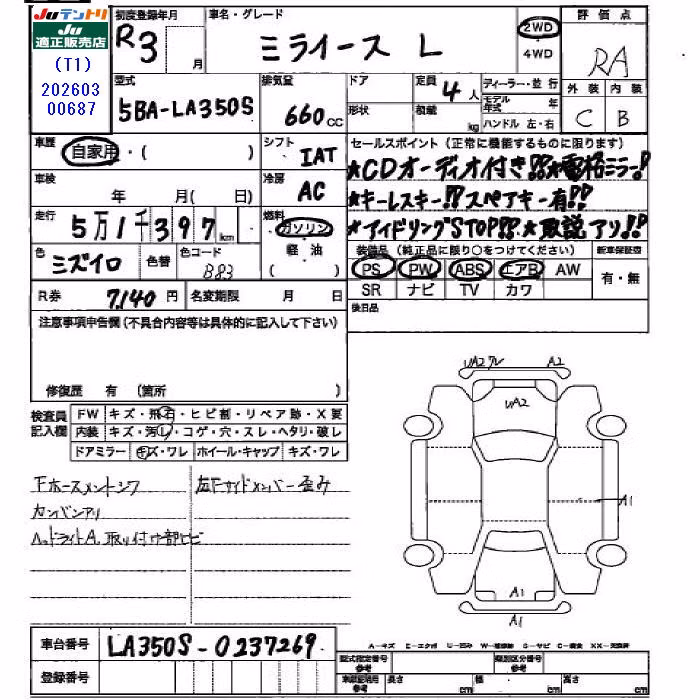 Juテントリ
Ju
適正販売店
(T1)
202603
00687
初度登録年月
R3
月
車名・グレード
ミライース L
2WD
・
4WD
評価点
RA
外装 内装
C B
型式
5BA-LA350S
排気量
660cc
ドア
形状
定員
4人
積載
kg
ディーラー・並行
モデル年式 年
ハンドル 左・右
車歴
自家用・( )
シフト
IAT
セールスポイント (正常に機能するものに限ります)
★CDオーディオ付き!!★電格ミラー!!
★キーレスキー!!スペアキー有!!
★アイドリングSTOP!!★取説アリ!!
車検
年 月( 日)
冷房
AC
走行
5万1千397km
燃料
ガソリン
・
軽油
( )
色
ミズイロ
色替
色コード
B83
装備品 (純正品に限り○をつけてください)
PS PW ABS エアB AW
SR ナビ TV カワ
新車保証書
有・無
R券 7140円
名変期限 月 日
後日品
注意事項申告欄(不具合内容等は具体的に記入して下さい)
修復歴 有 (箇所 )
検査員
記入欄
FW キズ・飛石・ヒビ割・リペア跡・X要
内装 キズ・汚れ・コゲ・穴・スレ・ヘタリ・破レ
ドアミラー キズ・ワレ ホイール・キャップ キズ・ワレ
Fホースメントシワ
左Fサイドメンバー歪み
カンバンアリ
ヘッドライトA、取り付け部ヒビ
UA2ワレ
A2
UA2
A1
A1
A1
車台番号
LA350S-0237269
登録番号
A－キズ E－エクボ U－凹み
型式指定番号
参考
類別区分番号
参考
車検証記載
参考
長さ cm
幅 cm
高さ cm